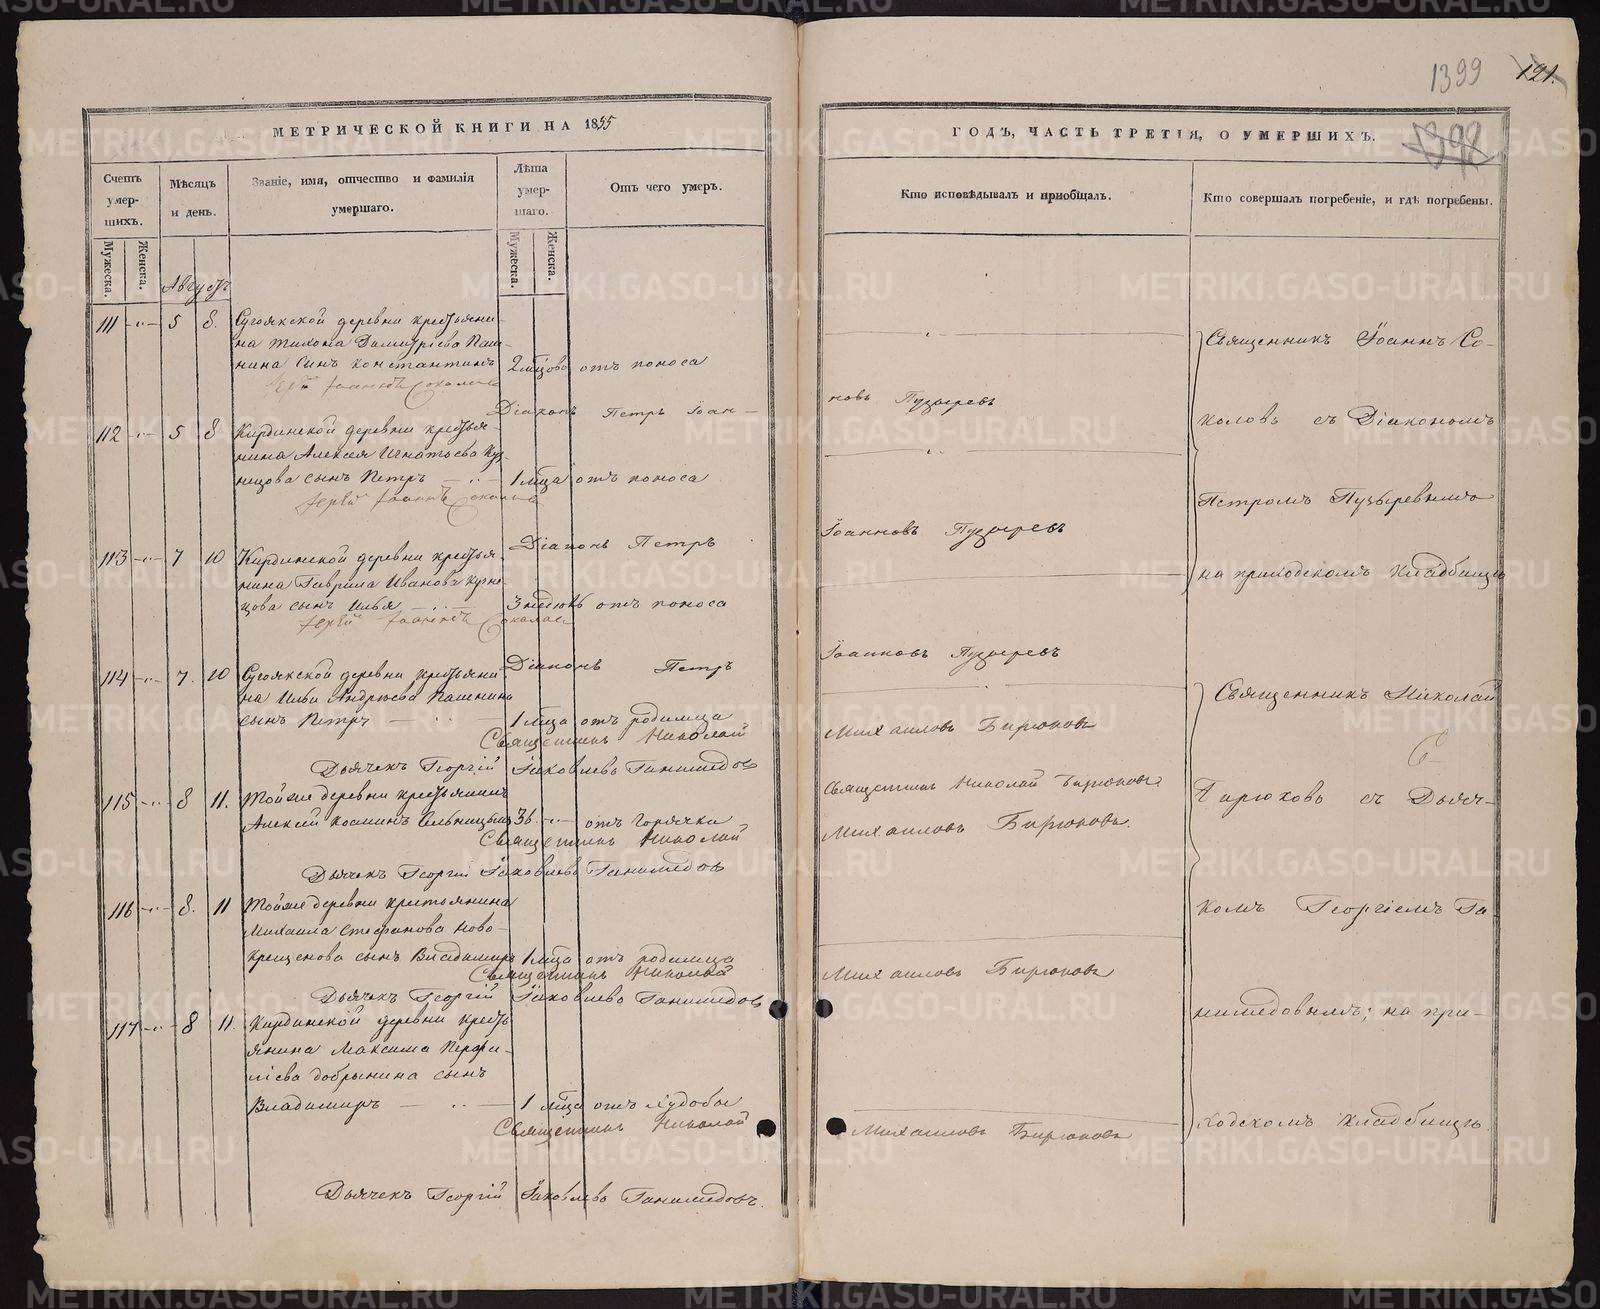 1399 121.
МЕТРИЧЕСКОЙ КНИГИ НА 1855
ГОДЪ, ЧАСТЬ ТРЕТІЯ, О УМЕРШИХЪ.
1398
Счетъ умер-шихъ.
Мѣсяцъ и день.
Званіе, имя, отчество и фамилія умершаго.
Лѣта умер-шаго.
Отъ чего умеръ.
Кто исповѣдывалъ и пріобщалъ.
Кто совершалъ погребеніе, и гдѣ погребены.
Мужеска. Женска.
Мужеска. Женска.
Августъ
111 5 8. Сугоякской деревни крестьяни-
на Тихона Димитріева Паш-
нина сынъ Константинъ 2 мѣсцовъ отъ поноса
Іерей Іоаннъ Соколовъ
Діаконъ Петръ Іоан-
новъ Пузыревъ
112 5 8 Кирдинской деревни крестья-
нина Алексея Игнатьева Куз-
нецова сынъ Петръ 1 мѣсца отъ поноса
Іерей Іоаннъ Соколовъ
Діаконъ Петръ
Іоанновъ Пузыревъ
113 7 10 Кирдинской деревни крестья-
нина Гаврила Иванова Кузне-
цова сынъ Илья 3 недѣль отъ поноса
Іерей Іоаннъ Соколовъ
Діаконъ Петръ
Іоанновъ Пузыревъ
114 7. 10 Сугоякской деревни крестьяни-
на Ильи Андреева Пашнина
сынъ Петръ 1 мѣсца отъ родимца
Священникъ Николай
Михаиловъ Бирюковъ
Дьячекъ Георгій Іаковлевъ Ганимедовъ
115 8 11. Тойже деревни крестьянинъ
Алексій Козминъ 36. отъ горячки
Священникъ Николай Бирюковъ
Священникъ Николай
Михаиловъ Бирюковъ.
Дьячекъ Георгій Іаковлевъ Ганимедовъ
116 8. 11 Тойже деревни крестьянина
Михаила Стефанова Ново-
крещенова сынъ Владимиръ 1 мѣсца отъ родимца
Священникъ Николай
Михаиловъ Бирюковъ
Дьячекъ Георгій Іаковлевъ Ганимедовъ
117 8 11. Кирдинской деревни кресть-
янина Максима Перфи-
лієва Добрынина сынъ
Владимиръ 1 мѣсца отъ худобы
Священникъ Николай
Михаиловъ Бирюковъ
Дьячекъ Георгій Іаковлевъ Ганимедовъ.
Священникъ Іоаннъ Со-
коловъ съ Діакономъ
Петромъ Пузыревымъ
на приходскомъ кладбищѣ
Священникъ Николай
Бирюковъ съ Дьяч-
комъ Георгіемъ Га-
нимедовымъ; на при-
ходскомъ кладбищѣ.
METRIKI.GASO-URAL.RU